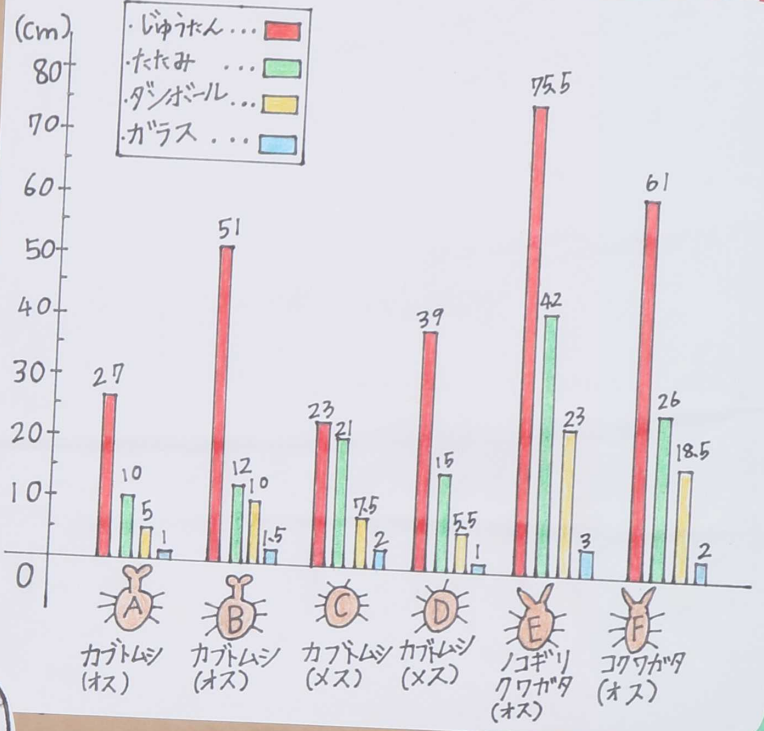 (cm)
・じゅうたん・・・
・たたみ ・・・
・ダンボール・・・
・ガラス ・・・
80
70
60
50
40
30
20
10
0
27
10
5
1
51
12
10
1.5
23
21
7.5
2
39
15
5.5
1
75.5
42
23
3
61
26
18.5
2
A
B
C
D
E
F
カブトムシ
(オス)
カブトムシ
(オス)
カブトムシ
(メス)
カブトムシ
(メス)
ノコギリ
クワガタ
(オス)
コクワガタ
(オス)